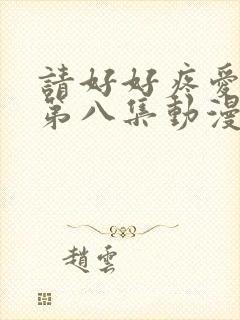 請好好疼愛
第八集動漫
趙雲